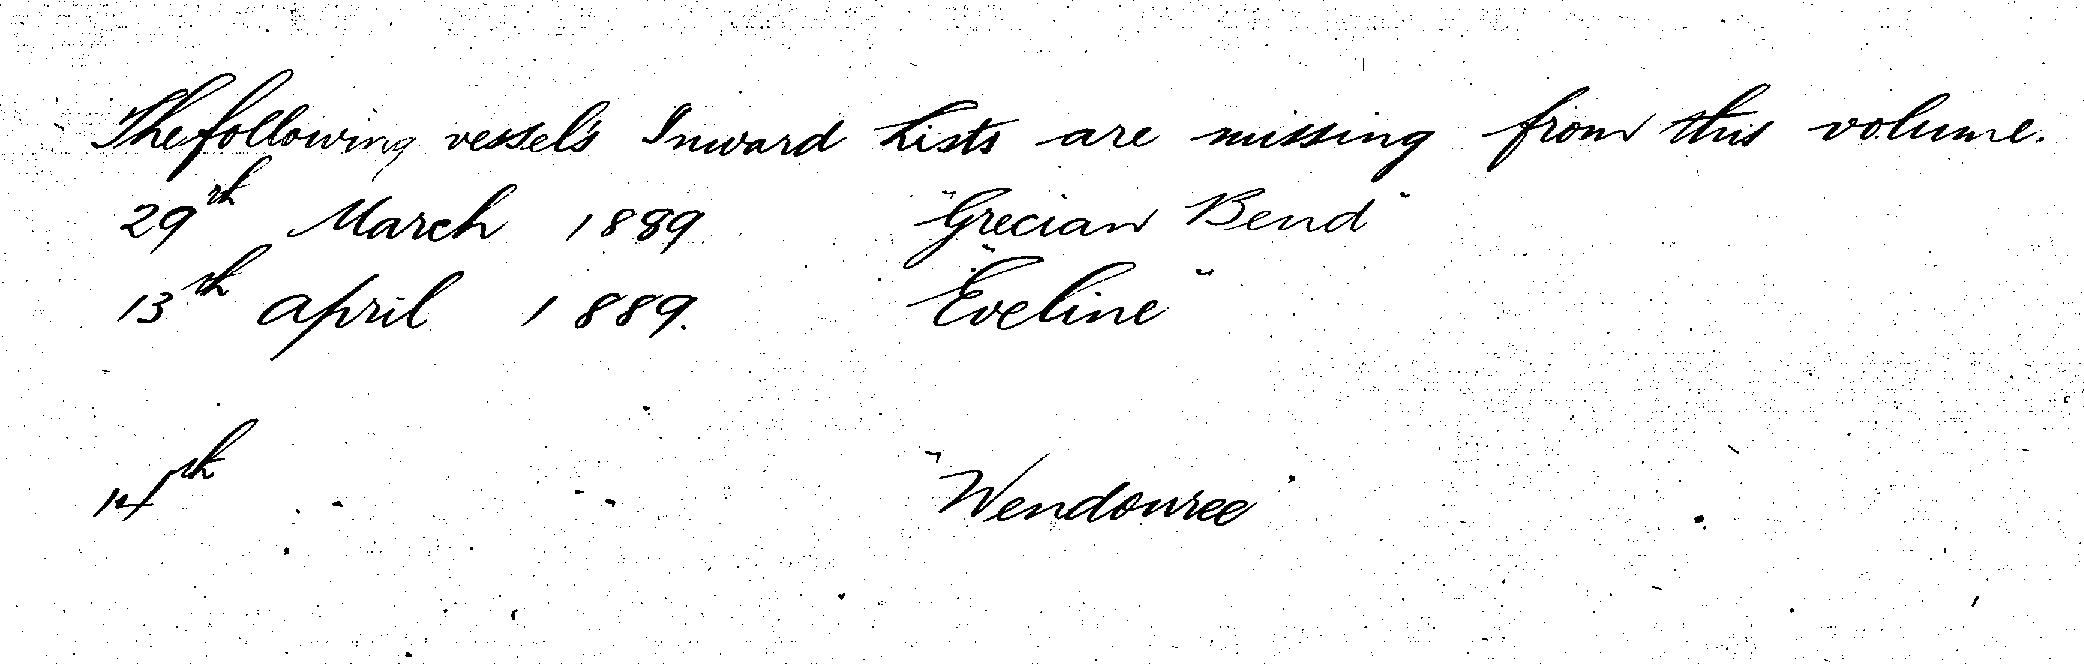 The following vessel's Inward Lists are missing from this volume.
29th March 1889 "Grecian Bend"
13th April 1889. "Eveline"
14th " " "Wendouree"